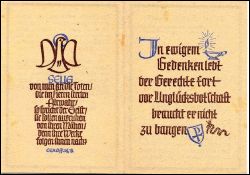 SELIG
von nun an die Toten/
die im Herrn sterben
Fürwahr/
so spricht der Geist/
sie sollen ausruhen
von ihren Mühen/
denn ihre Werke
folgen ihnen nach
In ewigem
Gedenken lebt
der Gerechte fort
vor Unglücksbotschaft
braucht er nicht
zu bangen